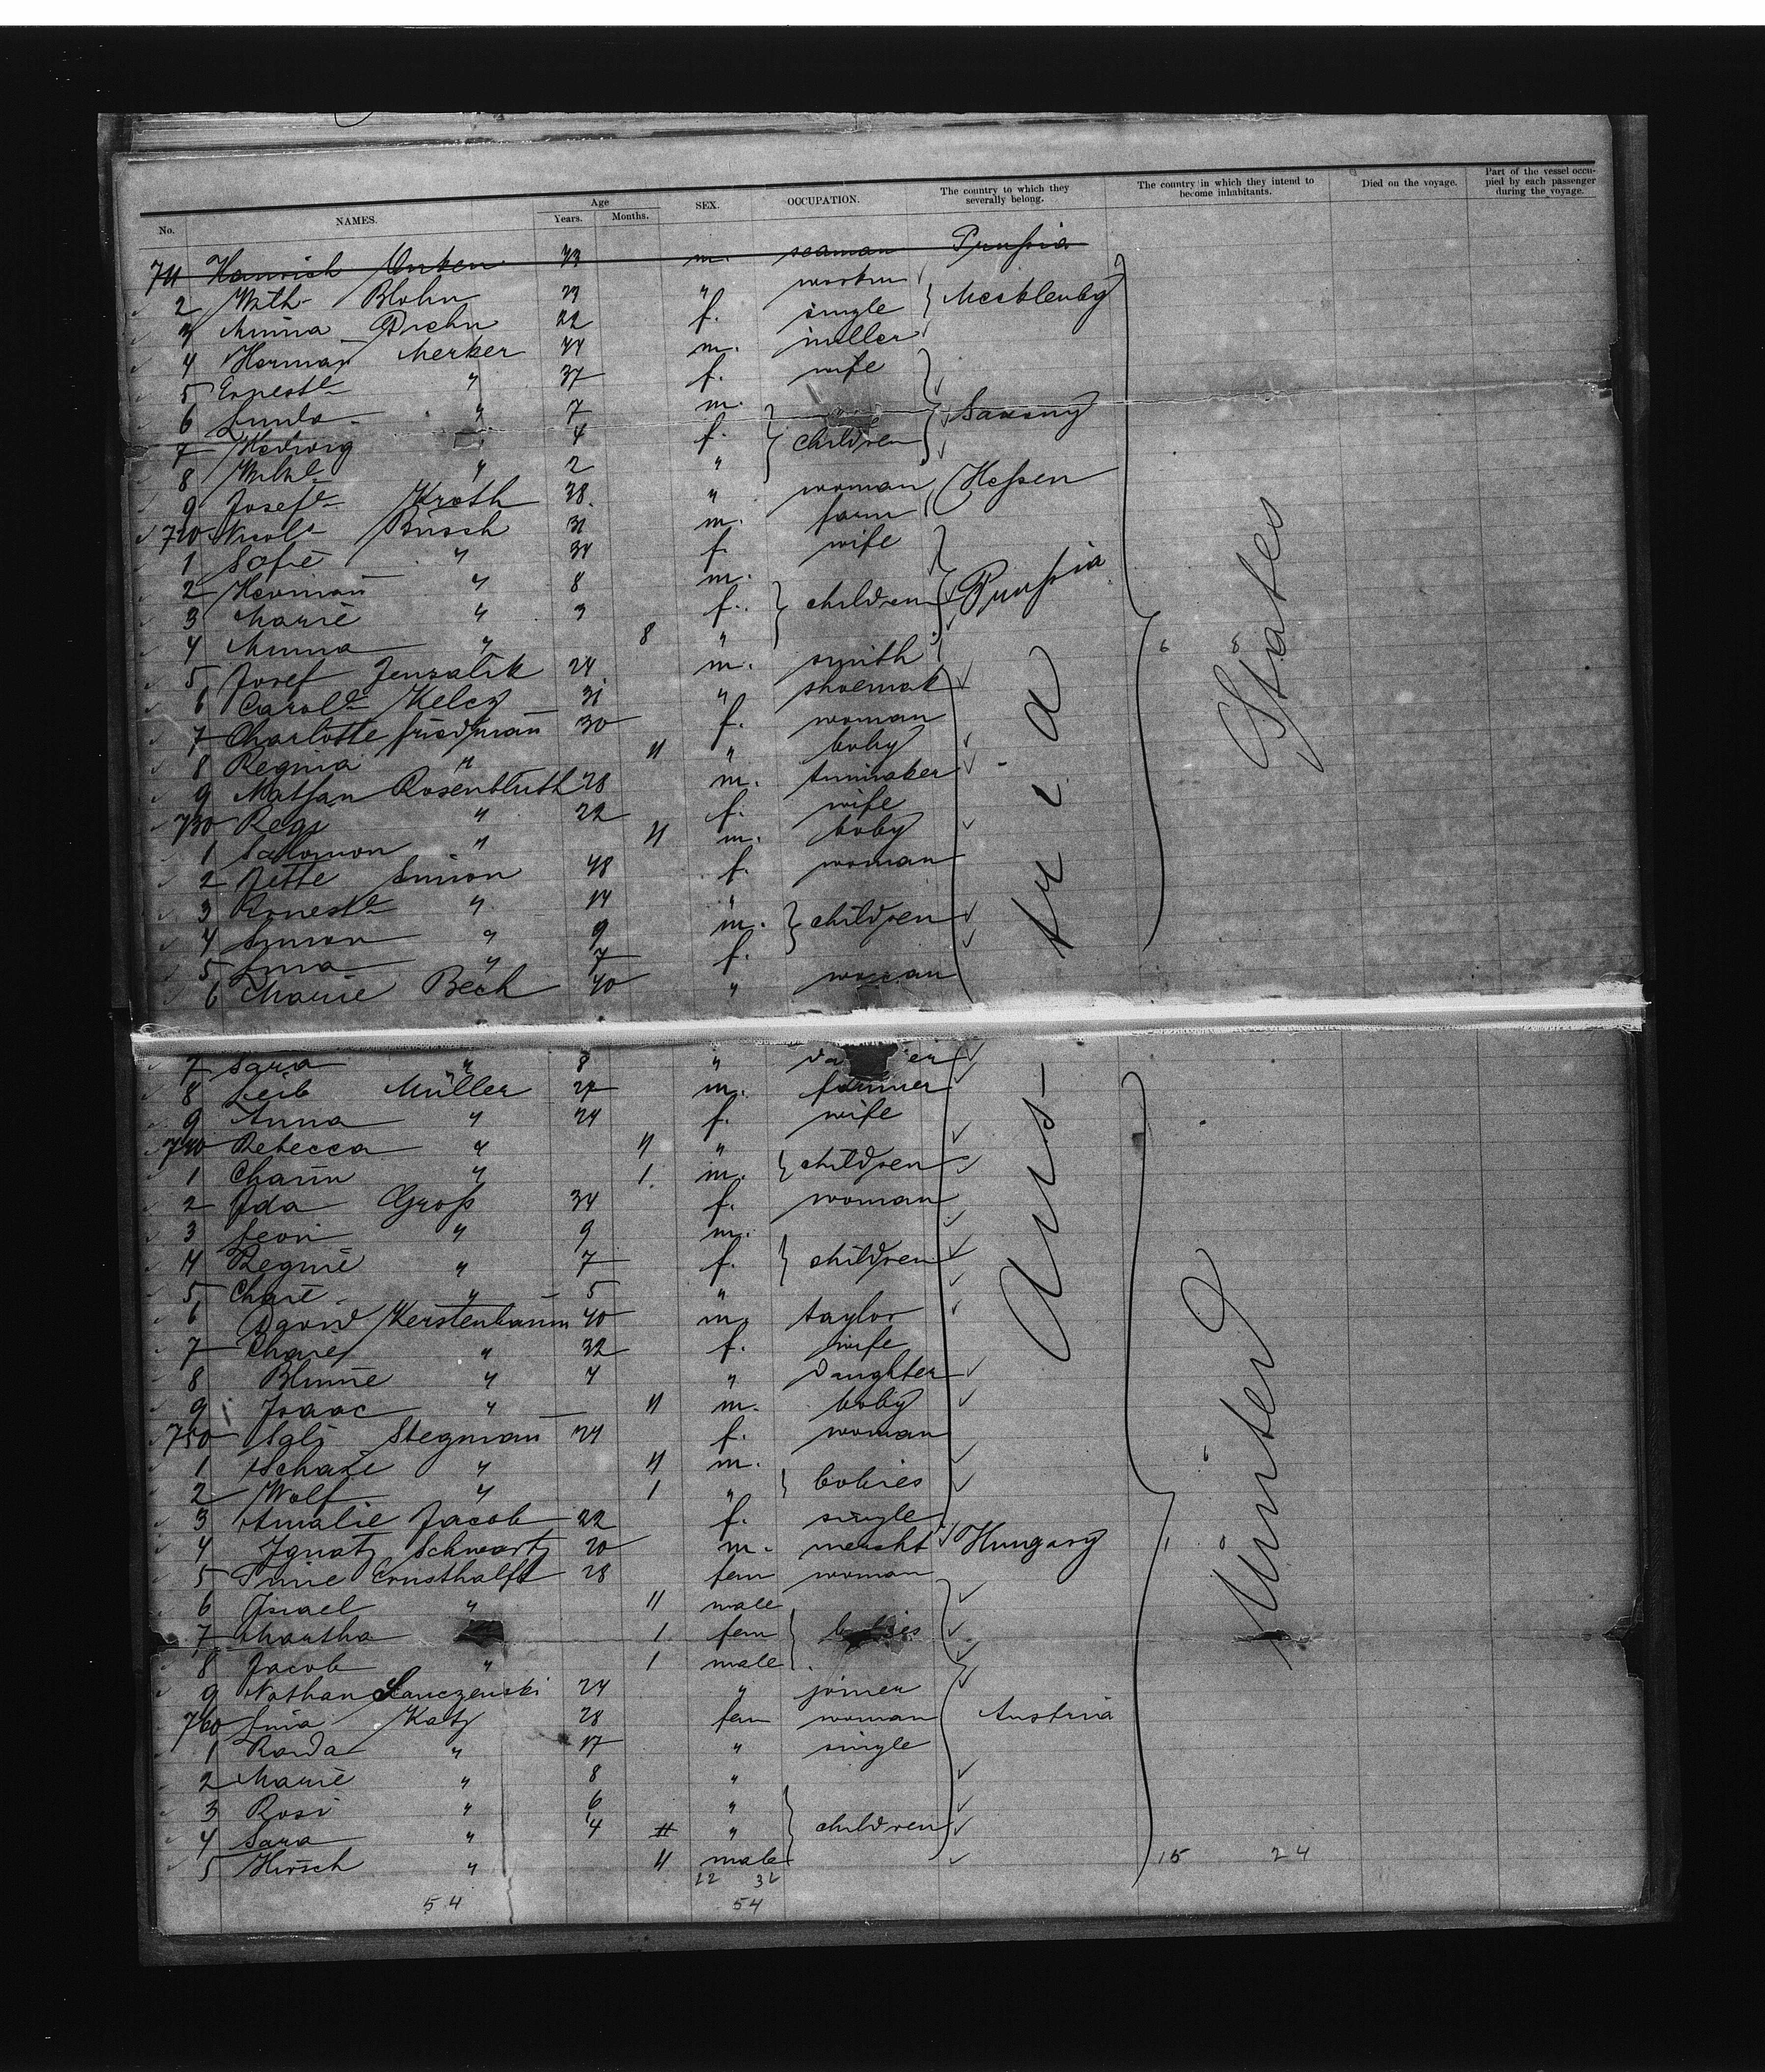 No. NAMES. Age Years. Months. SEX. OCCUPATION. The country to which they severally belong. The country in which they intend to become inhabitants. Died on the voyage. Part of the vessel occupied by each passenger during the voyage.
711 Heinrich Onken 43 m. seaman Prussia
2 Wilh. Blohn 29 " workm
3 Minna Diehn 22 f. single Mecklenbg
4 Herman Merker 44 m. miller
5 Erneste " 37 f. wife
6 " 7 m.
7 Hedwig " 4 f. children Saxony
8 Wilhe " 2 "
9 Josefe Kroth 38 " woman Hessen
720 Nicol Busch 31 m. farm
1 Sofie " 34 f. wife
2 Herman " 8 m.
3 Marie " 3 f. children Prussia
4 Minna " 8 "
5 Josef Jenzalik 24 m. smith
6 Carole Kelcz 31 " shoemak
7 Charlotte Friedman 30 f. woman
8 Regina " 11 " baby
9 Mathan Rosenbluth 28 m.
730 Regi " 22 f. wife
1 Salomon " 11 m. baby
2 Jette Simon 48 f. woman
3 Erneste " 14 "
4 Simon " 9 m. children
5 Lina " 7 f.
6 Marie Beck 40 " woman
7 Sara " 8 "
8 Leib Müller 27 m. farmer
9 Anna " 24 f. wife
740 Rebecca " 11 "
1 Chaim " 1 m. children
2 Ida Gross 34 f. woman
3 Leon " 9 m.
4 Regine " 7 f. children
5 Chaie " 5 "
6 David Kerstenbaum 40 m. taylor
7 Chaie " 32 f. wife
8 Blume " 4 " daughter
9 Isaac " 11 m. baby
750 Sali Stegman 24 f. woman
1 Schaie " 11 m.
2 Wolf " 1 " babies
3 Amalie Jacob 22 f. single
4 Ignatz Schwartz 20 m. mercht Hungary
5 Trine Ernsthalft 28 fem woman
6 Israel " 11 male
7 Martha 1 fem babies
8 Jacob " 1 male
9 Nathan Lanczenski 24 " joiner
760 Lina Katz 28 fem woman Austria
1 " 17 " single
2 Marie " 8 "
3 Rosi " 6 "
4 Sara " 4 " children
5 Hirsch " 11 male
22 32
54 54
15 24
Austria
United States